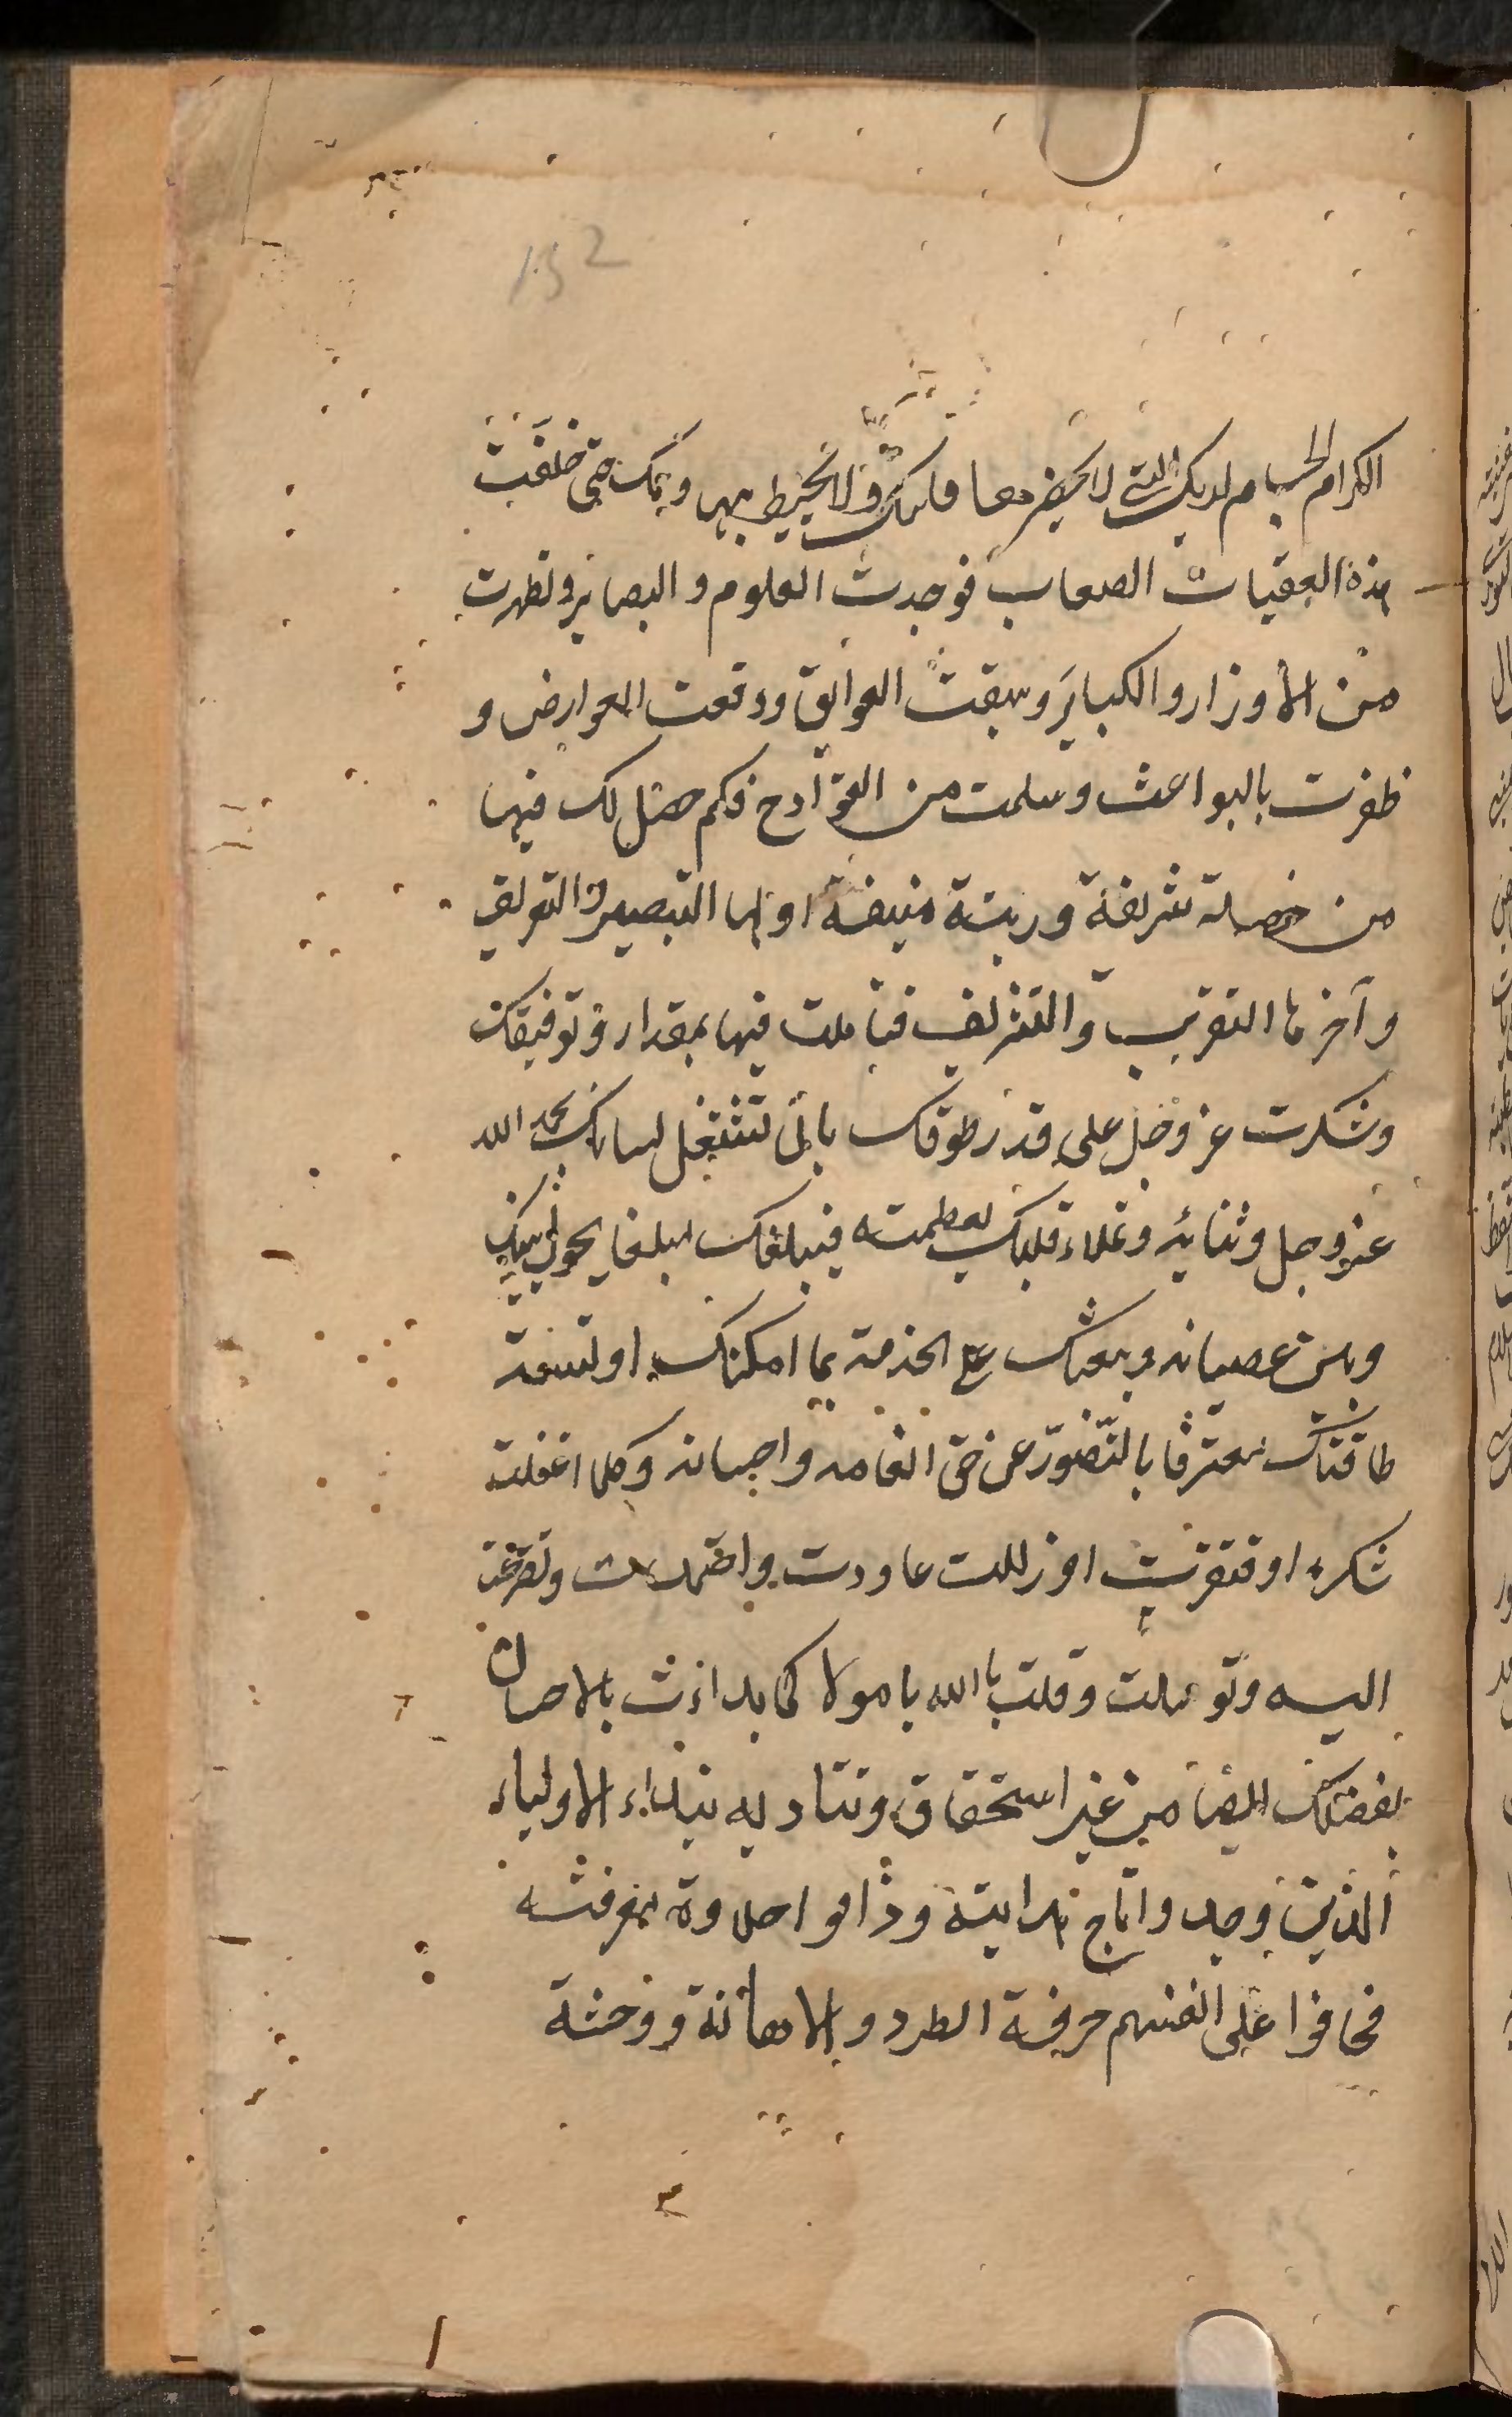 152
الكرام الجسام لديك التي لا يحضر معا قلبك ولا يحيط بها وهمك حتى خلفت
هذه العقبات الصعاب فوجدت العلوم والبصاير وتطهرت
من الأوزار والكباير وسبقت العوايق ودفعت العوارض و
ظفرت بالبواعث وسلمت من القوادح فكم حصل لك فيها
من خصلة شريفة ورتبة منيفة اولها التبصير والتعريف
وآخرها التقريب والتشريف فتاملت فيها بمقدار وتوفيقك
وشكرت عز وجل على قدر طوقك بان تشتغل لسانك بحمد الله
عز وجل وثنائه وتملاء قلبك بعظمته فيبلغك مبلغا يحول بينك
وبين عصيانه وبعثك على الخدمة بما امكنك او تسعه
طاقتك معترفا بالتقصير عن حق انعامه واحسانه وكلما اغفلت
شكره او فترت او زللت عاودت واجتهدت وتضرعت
اليه وتوسلت وقلت يا الله يا مولا كما بداءت بالاحسان
بفضلك ايضا من غير استحقاق وتناديه بنداء الاولياء
الذين وجدوا تاج هدايته وذاقوا حلاوة معرفته
فخافوا على انفسهم حرقة الطرد والاهانة ووحشة